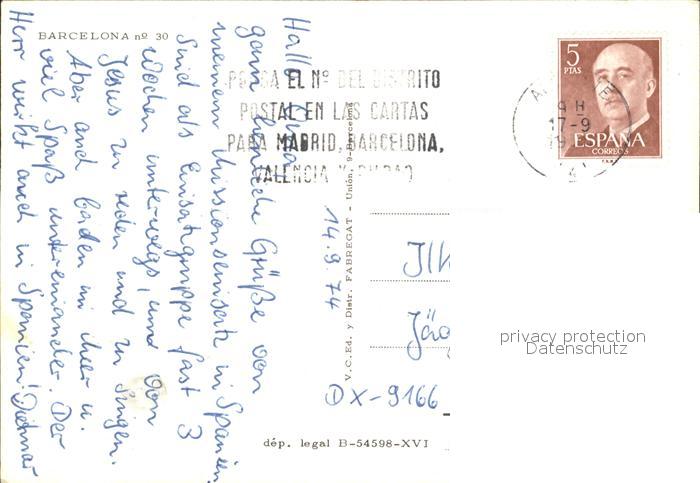 BARCELONA nº 30
5
PTAS
ESPAÑA
CORREOS
9 H
17-9
PONGA EL Nº DEL DISTRITO
POSTAL EN LAS CARTAS
PARA MADRID, BARCELONA,
VALENCIA Y BILBAO
Hallo
ganz herzliche Grüße von
meinem Missionseinsatz in Spanien
Sind als Einsatzgruppe fast 3
Wochen unterwegs, und von
Jesus zu reden und zu singen.
Aber auch baden im Meer u.
viel Spaß untereinander. Der
Herr wirkt auch in Spanien! Dietmar
14.9.74
V. C. Ed. y Distr. FABREGAT - Unión, 9-Barcelona
Jäg
DX-9166
dép. legal B-54598-XVI
privacy protection
Datenschutz